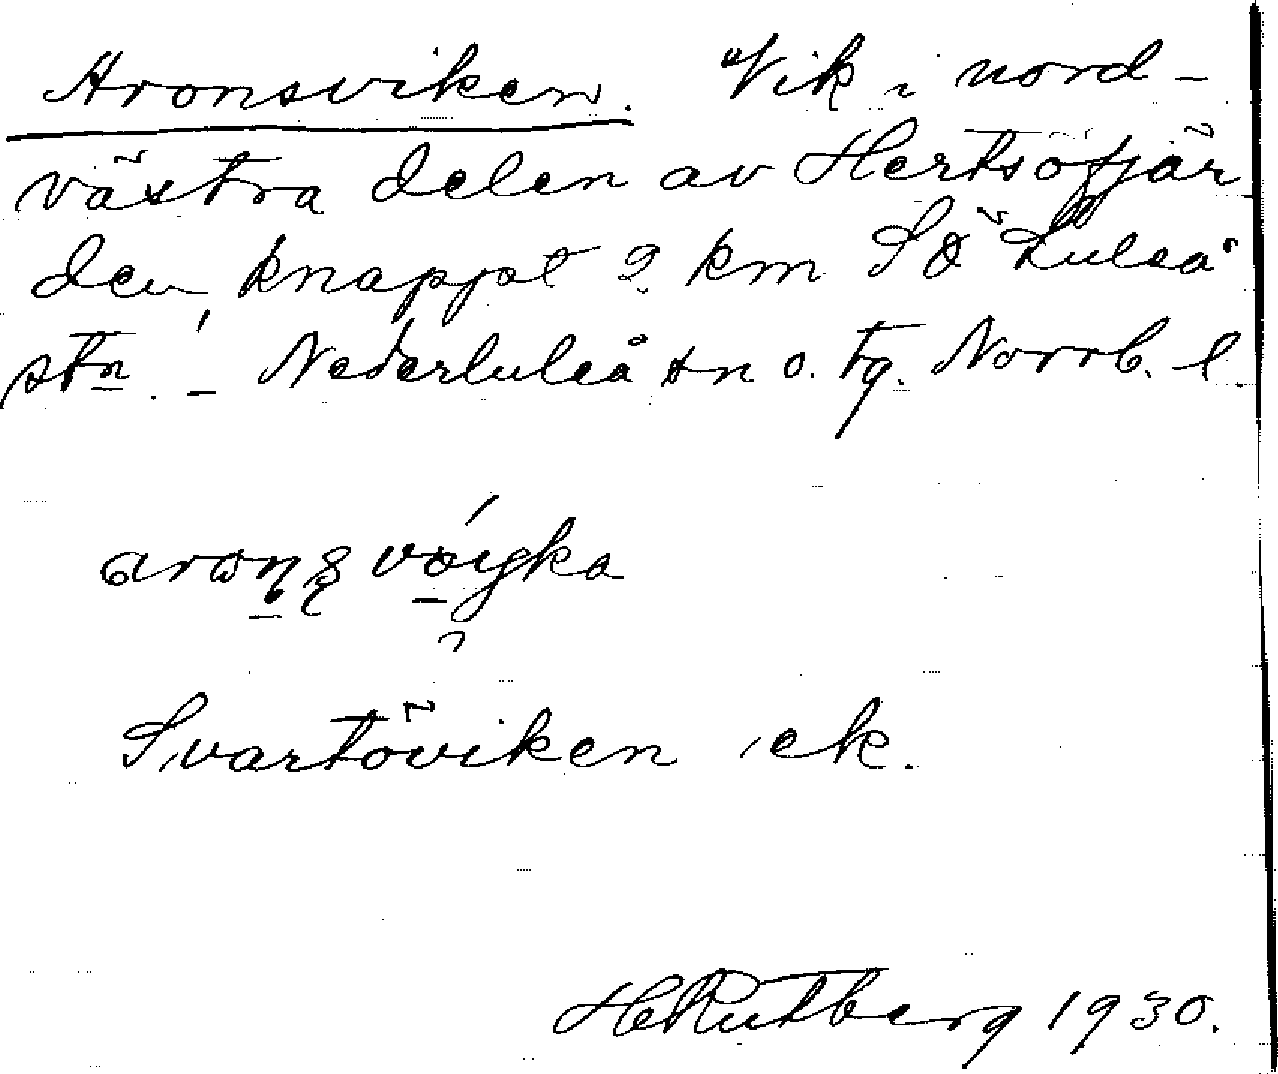 Aronsviken. Vik i nord-
västra delen av Hertsöfjär
den, knappt 2 km SÖ Luleå
stn. - Nederluleå sn o. tg. Norrb. l.
Svartöviken, ek.
H Rutberg 1930.